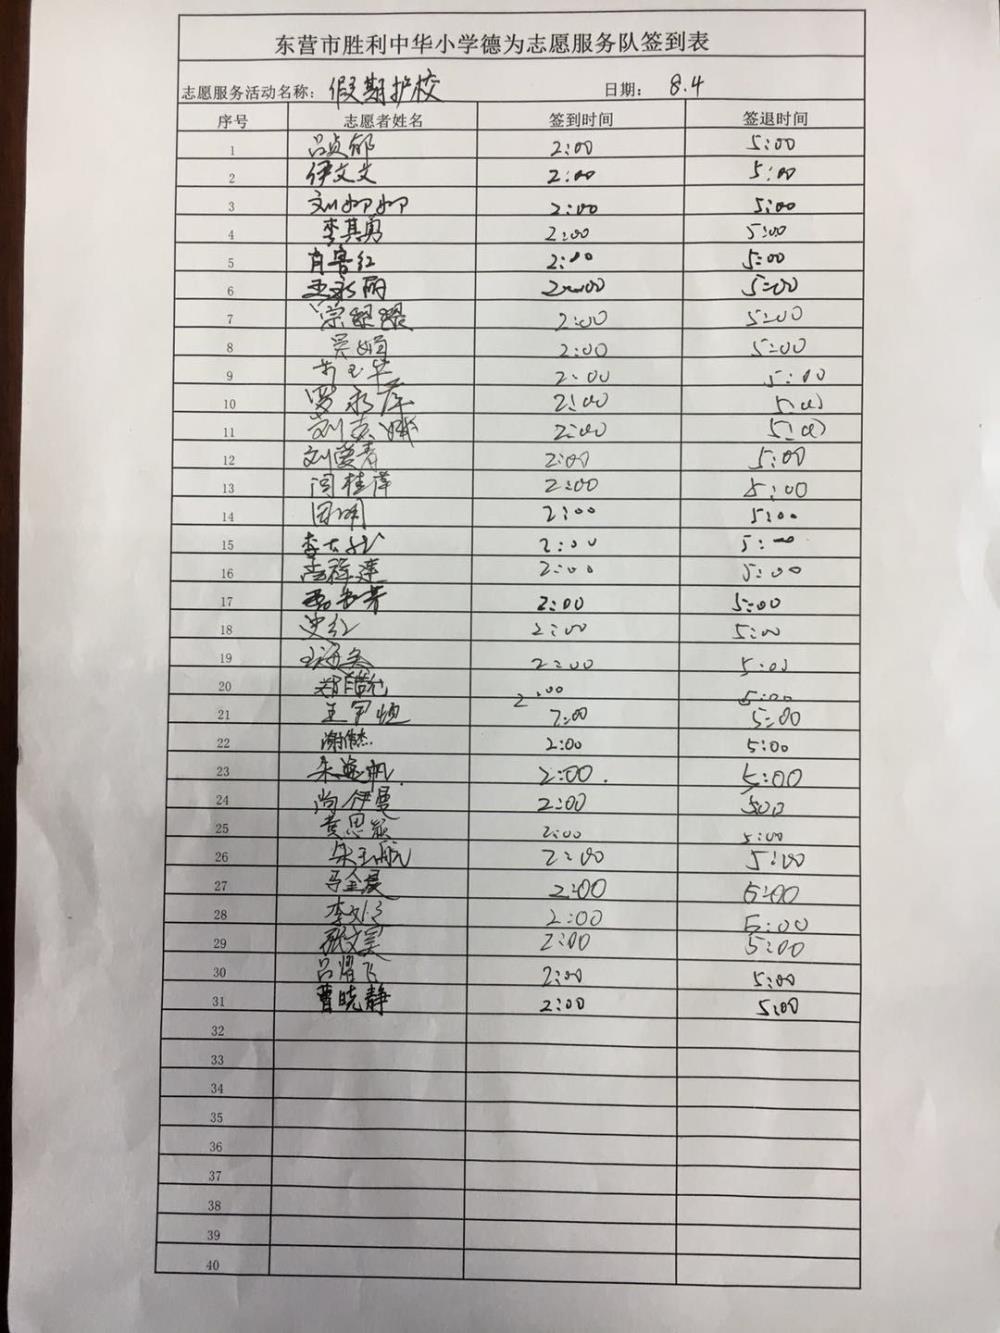 东营市胜利中华小学德为志愿服务队签到表
志愿服务活动名称：假期护校 日期：8.4
序号 志愿者姓名 签到时间 签退时间
1 吕贞郁 2:00 5:00
2 伊文文 2:00 5:00
3 刘柳柳 2:00 5:00
4 李其勇 2:00 5:00
5 肖鲁红 2:00 5:00
6 王永丽 2:00 5:00
7 2:00 5:00
8 吴娟 2:00 5:00
9 玉华 2:00 5:00
10 罗永 2:00 5:00
11 刘 2:00 5:00
12 刘爱青 2:00 5:00
13 闫桂萍 2:00 5:00
14 周明 2:00 5:00
15 李 2:00 5:00
16 祥莲 2:00 5:00
17 2:00 5:00
18 史红 2:00 5:00
19 2:00 5:00
20 郑 2:00 5:00
21 王 2:00 5:00
22 谢伟杰 2:00 5:00
23 朱逸帆 2:00. 5:00
24 尚伊曼 2:00 500
25 黄思 2:00 5:00
26 朱玉航 2:00 5:00
27 马金晨 2:00 5:00
28 李 2:00 5:00
29 张文昊 2:00 5:00
30 吕耀飞 2:00 5:00
31 曹晓静 2:00 5:00
32
33
34
35
36
37
38
39
40